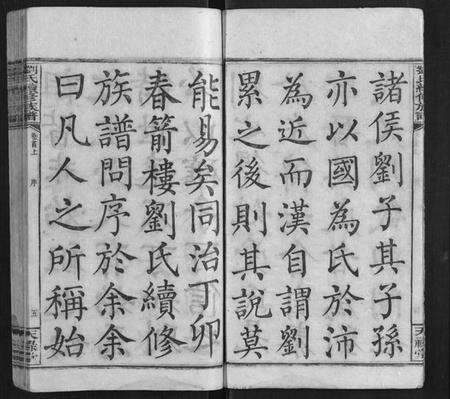 諸侯劉子其子孫
亦以國為氏於沛
為近而漢自謂劉
累之後則其說莫
能易矣同治丁卯
春箭樓劉氏續修
族譜問序於余余
曰凡人之所稱始
卷首上
序
五